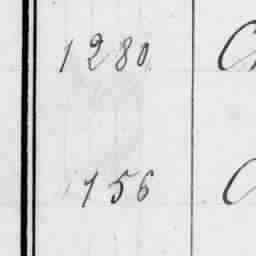 1280
156